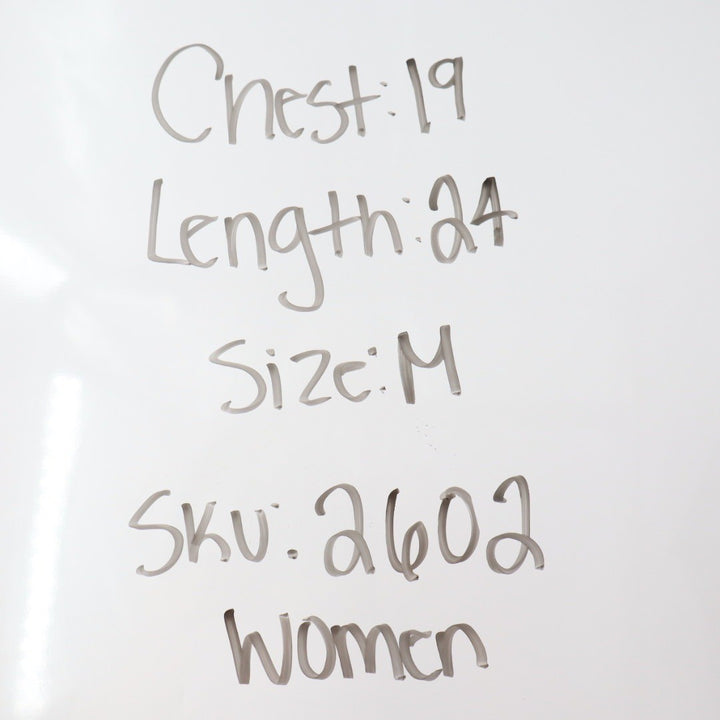 Chest: 19
Length: 24
Size: M
SKU: 2602
Women